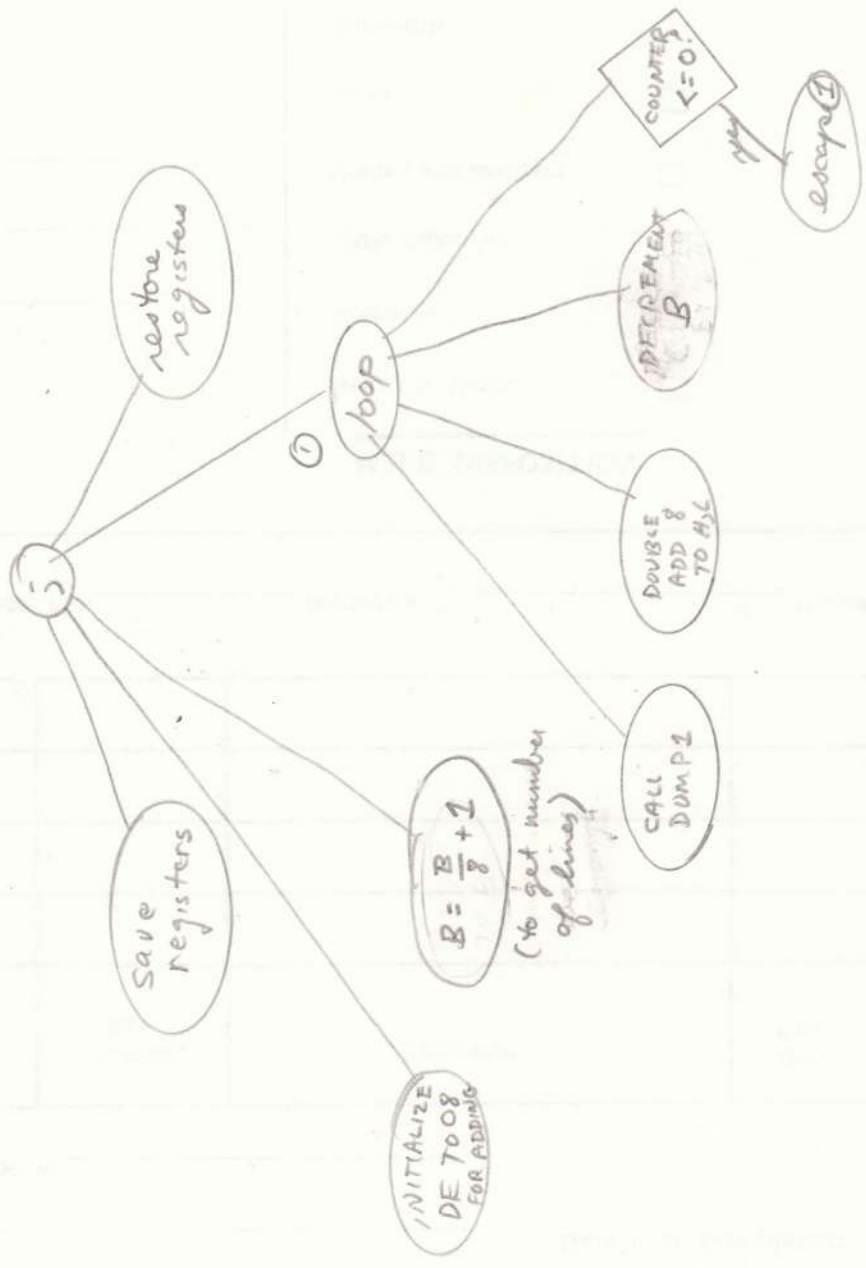 ;
save
registers
INITIALIZE
DE TO 08
FOR ADDING
B = B/8 + 1
(to get number
of lines)
①
loop
restore
registers
CALL
DUMP1
DOUBLE
ADD 8
TO H,L
DECREMENT
B
COUNTER
<= 0?
yes
escape ①